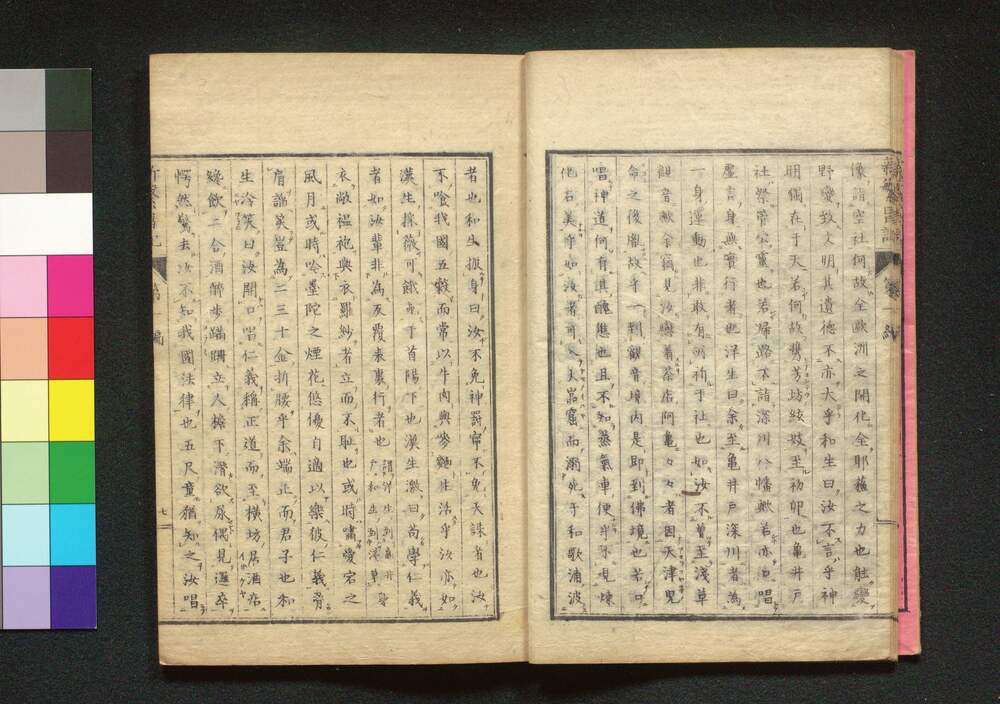 像詣空社何故全歐洲之開化全耶蘇之力也能變
野蠻致文明其遺德不亦大乎和生曰汝不言乎神
明猶在于天若何故携芳坊絃妓至初卯也龜井戸
社祭菅公靈也若歸路不詣深川八幡歟若亦口唱
虛言身無實行者也洋生曰余至龜井戸深川者為
一身運動也非敢有所祈于社也如汝不曽至淺草
觀音歟余竊見汝戀着茶店阿亀々々者因天津兒
命之後胤故乎一到觀音境内是即到佛境也若口
唱神道何有其醜態也且不知蒸氣車便身不現煉
化石美乎如汝者可入大𡶶窟而溺死于和歌浦波
者也和生振身曰汝不免神罰甯不免天誅者也汝
不喰我國五穀而常以牛肉與麥麵生活乎汝亦如
漢生採薇可餓死于首陽下也漢生激曰苟學仁義
者如汝輩非為反覆表裏行者也
衣敝縕袍與衣羅紗者立而不恥也或時嘯愛宕之
風月或時吟墨陀之煙花悠優自適以樂彼仁義脅
肩諂笑豈為二三十金折腰乎余端正而君子也和
生冷笑曰汝開口唱仁義稱正道而至横坊居酒店
纔飲二合酒酔歩蹣跚立人檐下潜欲尿偶見邏卒
愕然驚去汝不知我國法律也五尺童猶知之汝唱
第一編
七